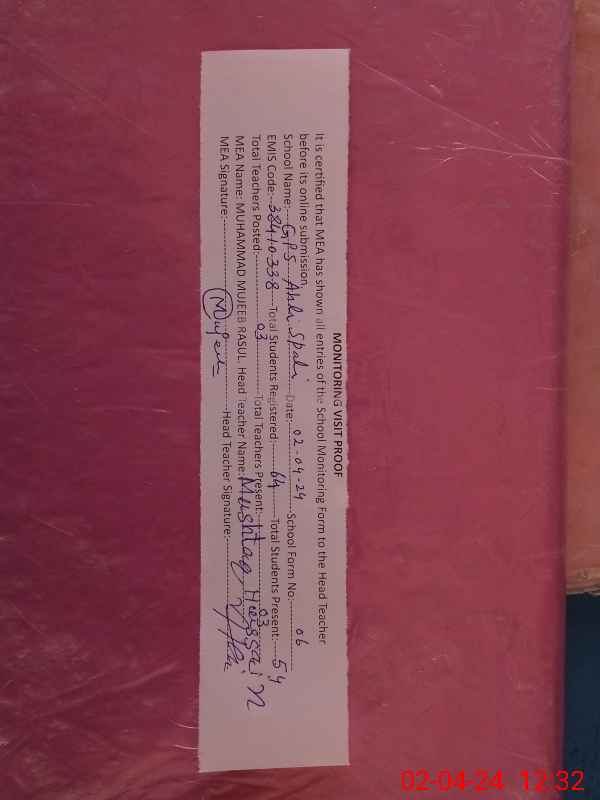 MONITORING VISIT PROOF
It is certified that MEA has shown all entries of the School Monitoring Form to the Head Teacher
before its online submission.
School Name:---GPS Ahli Spahi---Date:---02-04-24---School Form No.---06
EMIS Code:--38410338---Total Students Registered:---64---Total Students Present:---54
Total Teachers Posted:---03---Total Teachers Present:---03
MEA Name: MUHAMMAD MUJEEB RASUL. Head Teacher Name: Mushtaq Hussain
MEA Signature:---Mujeeb---Head Teacher Signature:---
02-04-24 12:32